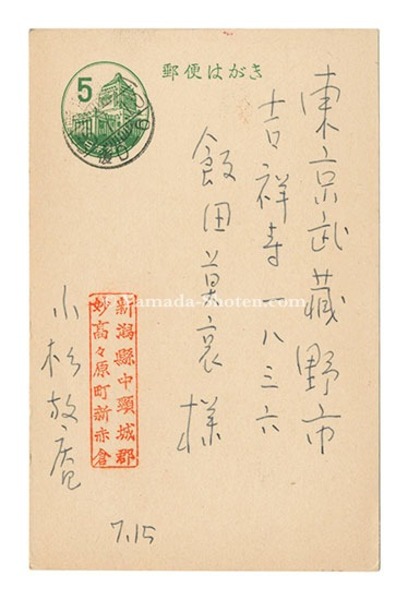 郵便はがき
5
東京武蔵野市
吉祥寺一八三六
飯田莫哀様
新潟縣中頸城郡
妙高々原町新赤倉
小松放庵
7.15
Yamada-Shoten.com